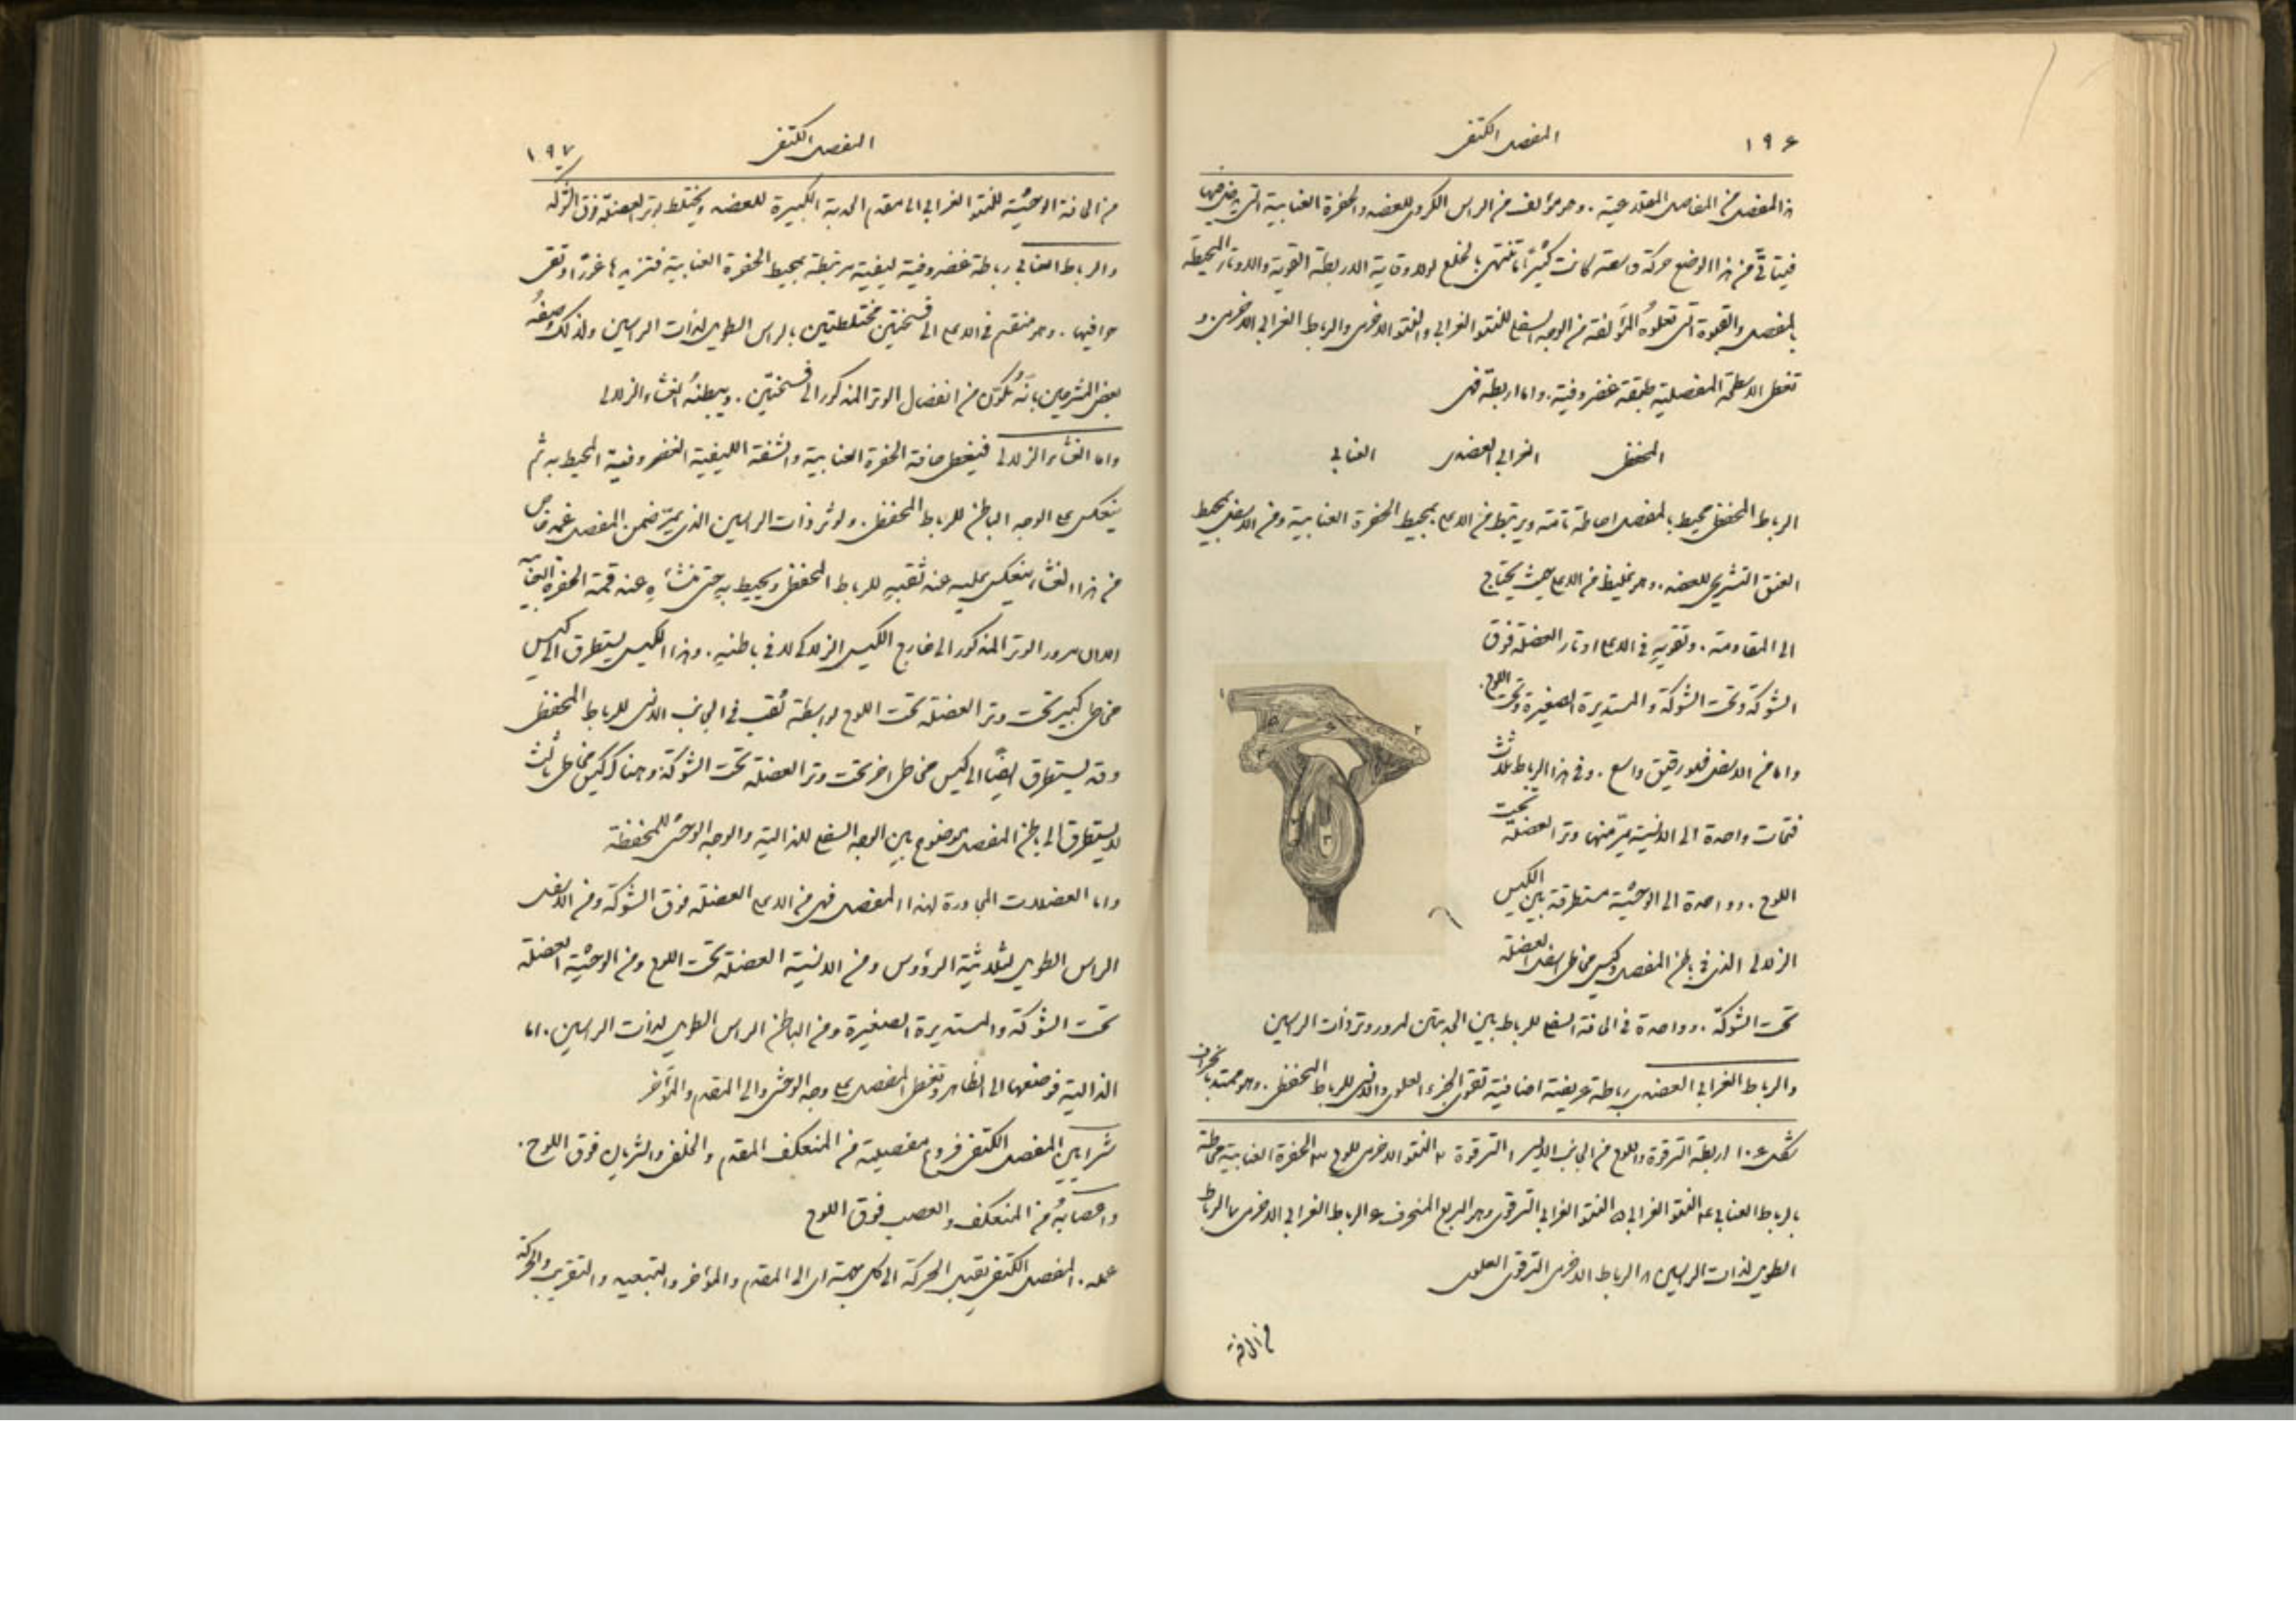 ١٩٦
المفصل الكتفي
هذا المفصل من المفاصل المقلدعية . وهو مؤلف من الراس الكروي للعضد والحفرة العنابية التي
فيتاتى من هذا الوضع حركة واسعة كانت كثيرا ما تنتهي بالخلع لولا وقاية الاربطة القوية والاوتار المحيطة
بالمفصل والقبوة التي تعلوه المؤلفة من الوجه السفلي للنتو الغرابي والنتو الاخرمي والرباط الغرابي الاخرمي . و
تغطي الاسطحة المفصلية طبقة غضروفية . واما اربطته فهي
المحفظي الغرابي العضدي العنابي
الرباط المحفظي محيط بالمفصل احاطة تامة ويرتبط من الاعلى بمحيط الحفرة العنابية ومن الاسفل بمحيط
العنق التشريحي للعضد . وهو غليظ من الاعلى حيث يحتاج
الى المقاومة . وتقويه في الاعلى اوتار العضلة فوق
الشوكة وتحت الشوكة والمستديرة الصغيرة وتحت اللوح .
واما من الاسفل فهو رقيق واسع . وفي هذا الرباط ثلاث
فتحات واحدة الى الانسية يمر منها وتر العضلة تحت
اللوح . وواحدة الى الوحشية مستطرقة بين الكيس
الزلالي الذي في باطن المفصل وكيس مخاطي اسفل العضلة
تحت الشوكة . وواحدة في الحافة السفلى للرباط بين الحدبتين لمرور وتر ذات الراسين
والرباط الغرابي العضدي رباطة عريضة اضافية تقوي الجزء العلوي والانسي للرباط المحفظي . وهو ممتد بانحراف
شكل ١٠٦ اربطة الترقوة واللوح من الجانب الايسر ١ الترقوة ٢ النتو الاخرمي للوح ٣ الحفرة العنابية محاطة
بالرباط العنابي ٤ النتو الغرابي ٥ النتو الغرابي الترقوي وهو المربع المنحرف ٦ الرباط الغرابي الاخرمي ٧ الرباط
الطويل لذات الراسين ٨ الرباط الاخرمي الترقوي العلوي
من الحافة
المفصل الكتفي
١٩٧
من الحافة الوحشية للنتو الغرابي الى مقدم الحدبة الكبيرة للعضد ويختلط بوتر العضلة فوق الشوكة
والرباط العنابي رباطة غضروفية ليفية مرتبطة بمحيط الحفرة العنابية فتزيدها غورًا وتقي
حوافيها . وهو منقسم في الاعلى الى فسختين مختلطتين بالراس الطويل لذات الراسين ولذلك وصفه
بعض المشرحين بانه تكون من انفصال الوتر المذكور الى فسختين . ويبطنه الغشاء الزلالي
واما الغشاء الزلالي فيغطي حافة الحفرة العنابية والشفة الليفية الغضروفية المحيطة به ثم
ينعكس على الوجه الباطن للرباط المحفظي . ولوتر ذات الراسين الذي يمر ضمن المفصل غمد خاص
من هذا الغشاء ينعكس عليه عند ثقبه للرباط المحفظي ويحيط به حتى منشاه عند قمة الحفرة العنابية
مرور الوتر المذكور الى خارج الكيس الزلالي لا في باطنه . وهذا الكيس يستطرق الى كيس
مخاطي كبير تحت وتر العضلة تحت اللوح بواسطة ثقب في الجانب الانسي للرباط المحفظي
وقد يستطرق ايضًا الى كيس مخاطي اخر تحت وتر العضلة تحت الشوكة وهناك كيس مخاطي ثالث
لا يستطرق الى باطن المفصل موضوع بين الوجه السفلي للدالية والوجه الوحشي للمحفظة
واما العضلات المجاورة لهذا المفصل فهي من الاعلى العضلة فوق الشوكة ومن الاسفل
الراس الطويل لثلاثية الرؤوس ومن الانسية العضلة تحت اللوح ومن الوحشية العضلة
تحت الشوكة والمستديرة الصغيرة ومن الباطن الراس الطويل لذات الراسين . اما
الدالية فوضعها الى الظاهر وتغطي المفصل على وجه الوحشي والى المقدم والمؤخر
شرايين المفصل الكتفي فروع مفصلية من المنعكف المقدم والخلفي والشريان فوق اللوح .
واعصابه من المنعكف والعصب فوق اللوح
عمله . المفصل الكتفي يقبل الحركة الى كل جهة اي الى المقدم والمؤخر والتبعيد والتقريب والحركة